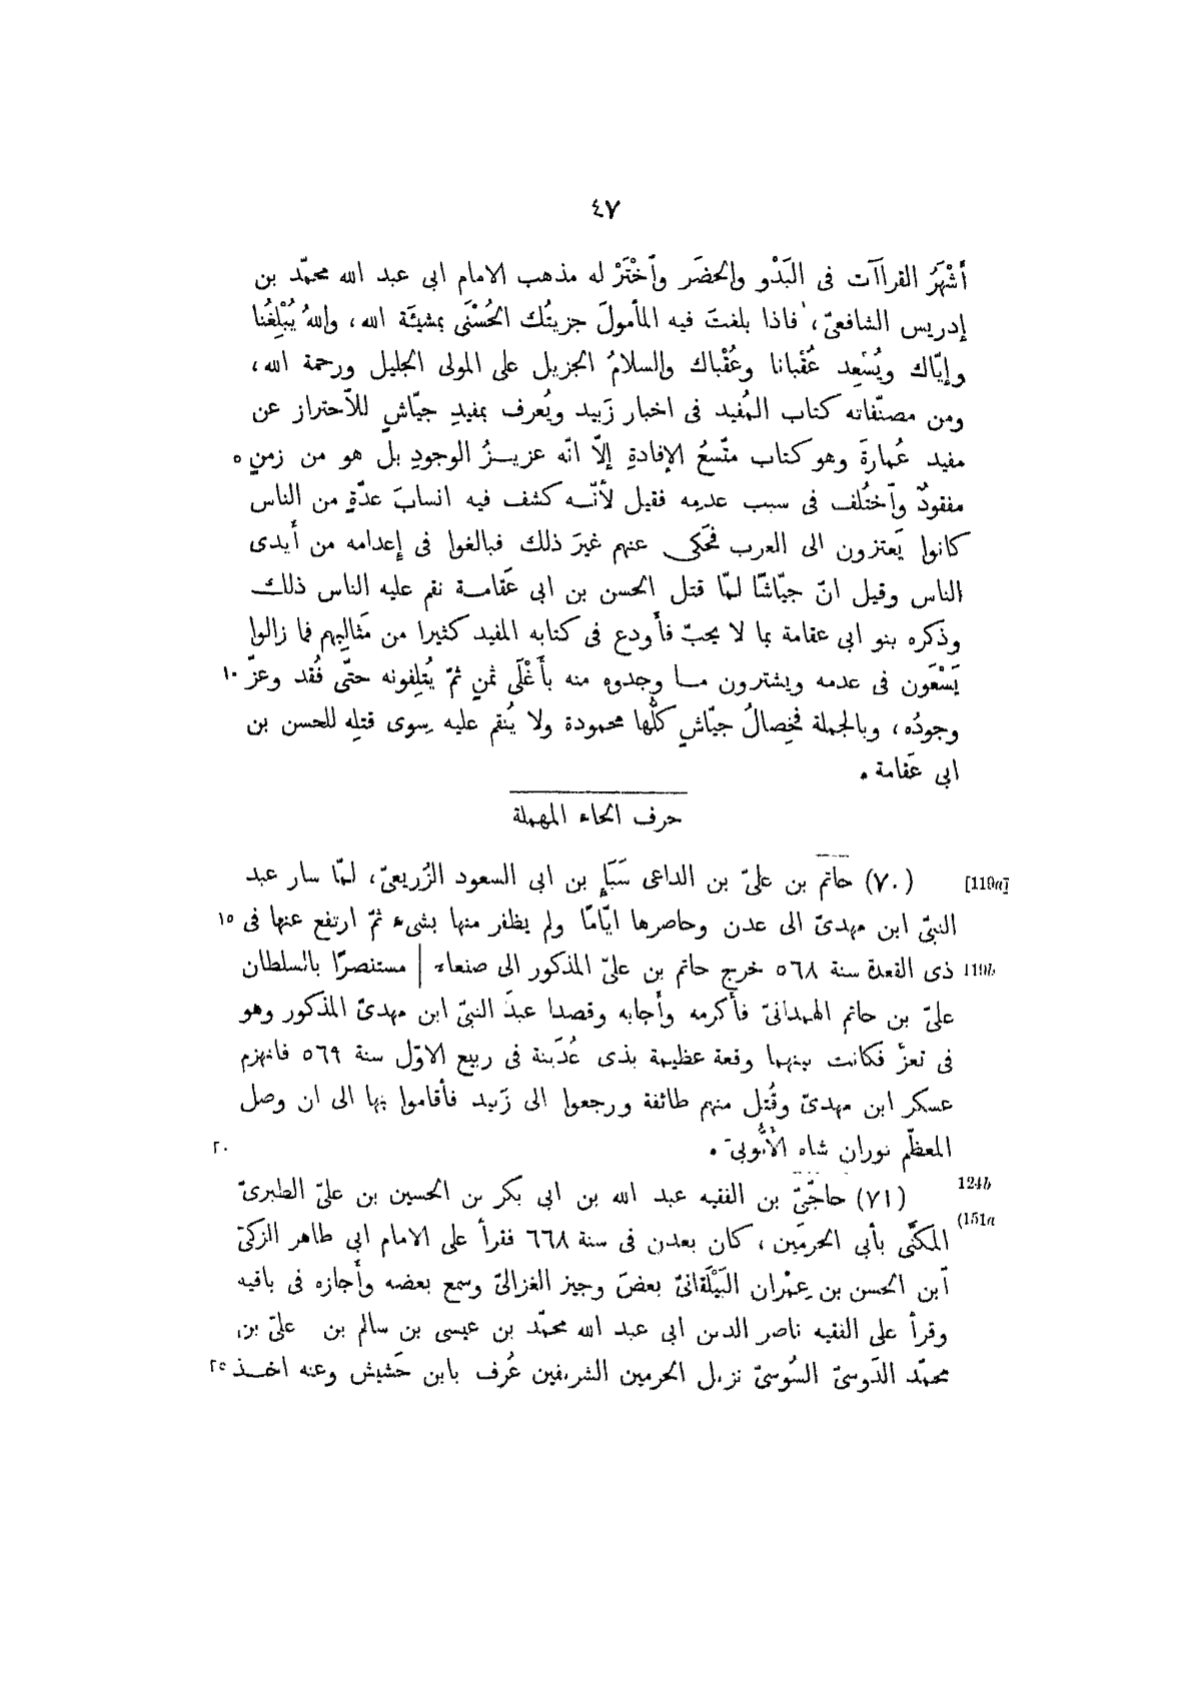 ٤٧
أَشْهَرُ القراآت فى البَدْو والحضَر وٱخْتَرْ له مذهب الامام ابى عبد الله محمّد بن
إدريس الشافعىّ، فاذا بلغتَ فيه المأمولَ جزيتُك الحُسْنَى بمشيئَة الله، واللهُ يُبْلِغُنا
وإيّاك ويُسْعِد عُقْبانا وعُقْباك والسلامُ الجزيل على المولى الجليل ورحمة الله،
ومن مصنّفاته كتاب المُفيد فى اخبار زَبيد ويُعرف بمفيدِ جيّاشٍ للٱحتراز عن
مفيد عُمارةَ وهو كتاب متّسعُ الإفادةِ إلّا انّه عزيزُ الوجودِ بل هو من زمنٍ ٥
مفقودٌ وٱختُلف فى سبب عدمِه فقيل لأنّه كشف فيه انسابَ عدّةٍ من الناس
كانوا يَعتزون الى العرب فحَكى عنهم غيرَ ذلك فبالغوا فى إعدامه من أيدى
الناس وقيل انّ جيّاشًا لمّا قتل الحسن بن ابى عَقامة نقم عليه الناس ذلك
وذكره بنو ابى عقامة بما لا يحبّ فأودع فى كتابه المفيد كثيرا من مَثالبِهم فما زالوا
يَسْعَون فى عدمه ويشترون ما وجدوه منه بأَغْلَى ثمنٍ ثمّ يُتلِفونه حتّى فُقد وعزّ ١٠
وجودُه، وبالجملة فخِصالُ جيّاشٍ كلُّها محمودة ولا يُنقم عليه سِوى قتلِه للحسن بن
ابى عَقامة .
حرف الحاء المهملة
[119a] (٧٠) حاتم بن علىّ بن الداعى سَبَإٍ بن ابى السعود الزُريعىّ، لمّا سار عبد
النبّى ابن مهدىّ الى عدن وحاصرها ايّامًا ولم يظفر منها بشىء ثمّ ارتفع عنها فى ١٥
119b ذى القعدة سنة ٥٦٨ خرج حاتم بن علىّ المذكور الى صنعاء | مستنصرًا بالسلطان
علىّ بن حاتم الهمدانىّ فأكرمه وأجابه وقصدا عبدَ النبّى ابن مهدىّ المذكور وهو
فى تعزّ فكانت بينهما وقعة عظيمة بذى عُدَينة فى ربيع الاوّل سنة ٥٦٩ فانهزم
عسكر ابن مهدىّ وقُتل منهم طائفة ورجعوا الى زَبيد فأقاموا بها الى ان وصل
المعظّم توران شاه الأَيُّوبىّ . ٢٠
124b (٧١) حاجّىّ بن الفقيه عبد الله بن ابى بكر بن الحسين بن علىّ الطبرىّ
(151a المكنَّى بأبى الحرمَين، كان بعدن فى سنة ٦٦٨ فقرأ على الامام ابى طاهر الزكىّ
ٱبن الحسن بن عِمْران البَيْلَقانىّ بعضَ وجيز الغزالىّ وسمع بعضه وأجازه فى باقيه
وقرأ على الفقيه ناصر الدين ابى عبد الله محمّد بن عيسى بن سالم بن علىّ بن
محمّد الدَوسىّ السُوسىّ نزيل الحرمين الشريفين عُرف بابن حَشيش وعنه اخذ ٢٥